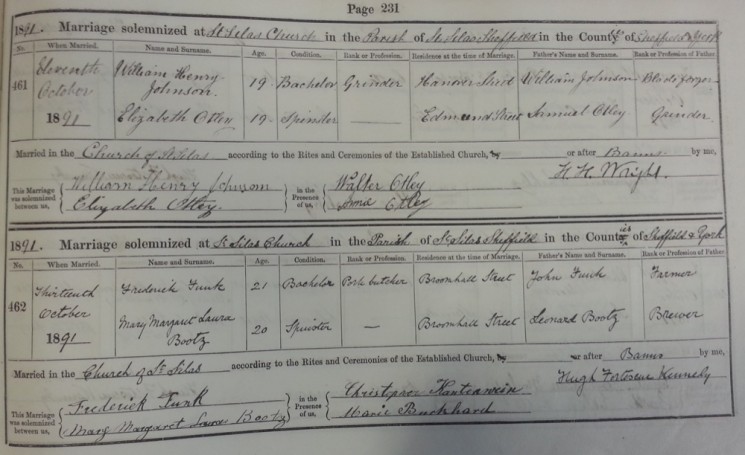 Page 231
1891. Marriage solemnized at St Silas Church in the Parish of St Silas Sheffield in the County of Sheffield & York
No. When Married. Name and Surname. Age. Condition. Rank or Profession. Residence at the time of Marriage. Father's Name and Surname. Rank or Profession of Father.
461 Eleventh October 1891 William Henry Johnson. 19 Bachelor Grinder Hanover Street William Johnson Blade forger
Elizabeth Ottey 19 Spinster — Edmund Street Samuel Ottey Grinder
Married in the Church of St Silas according to the Rites and Ceremonies of the Established Church, by or after Banns by me,
H. H. Wright.
This Marriage was solemnized between us, William Henry Johnson in the Presence of us, Walter Ottey
Elizabeth Ottey Ottey
1891. Marriage solemnized at St Silas Church in the Parish of St Silas Sheffield in the Counties of Sheffield & York
No. When Married. Name and Surname. Age. Condition. Rank or Profession. Residence at the time of Marriage. Father's Name and Surname. Rank or Profession of Father
462 Thirteenth October 1891 Frederick Funk 21 Bachelor Pork butcher Broomhall Street John Funk Farmer
Mary Margaret Laura Bootz 20 Spinster — Broomhall Street Leonard Bootz Brewer
Married in the Church of St Silas according to the Rites and Ceremonies of the Established Church, by or after Banns by me,
Hugh Fortescue Kennedy
This Marriage was solemnized between us, Frederick Funk in the Presence of us, Christopher
Mary Margaret Laura Bootz Marie Burkhard